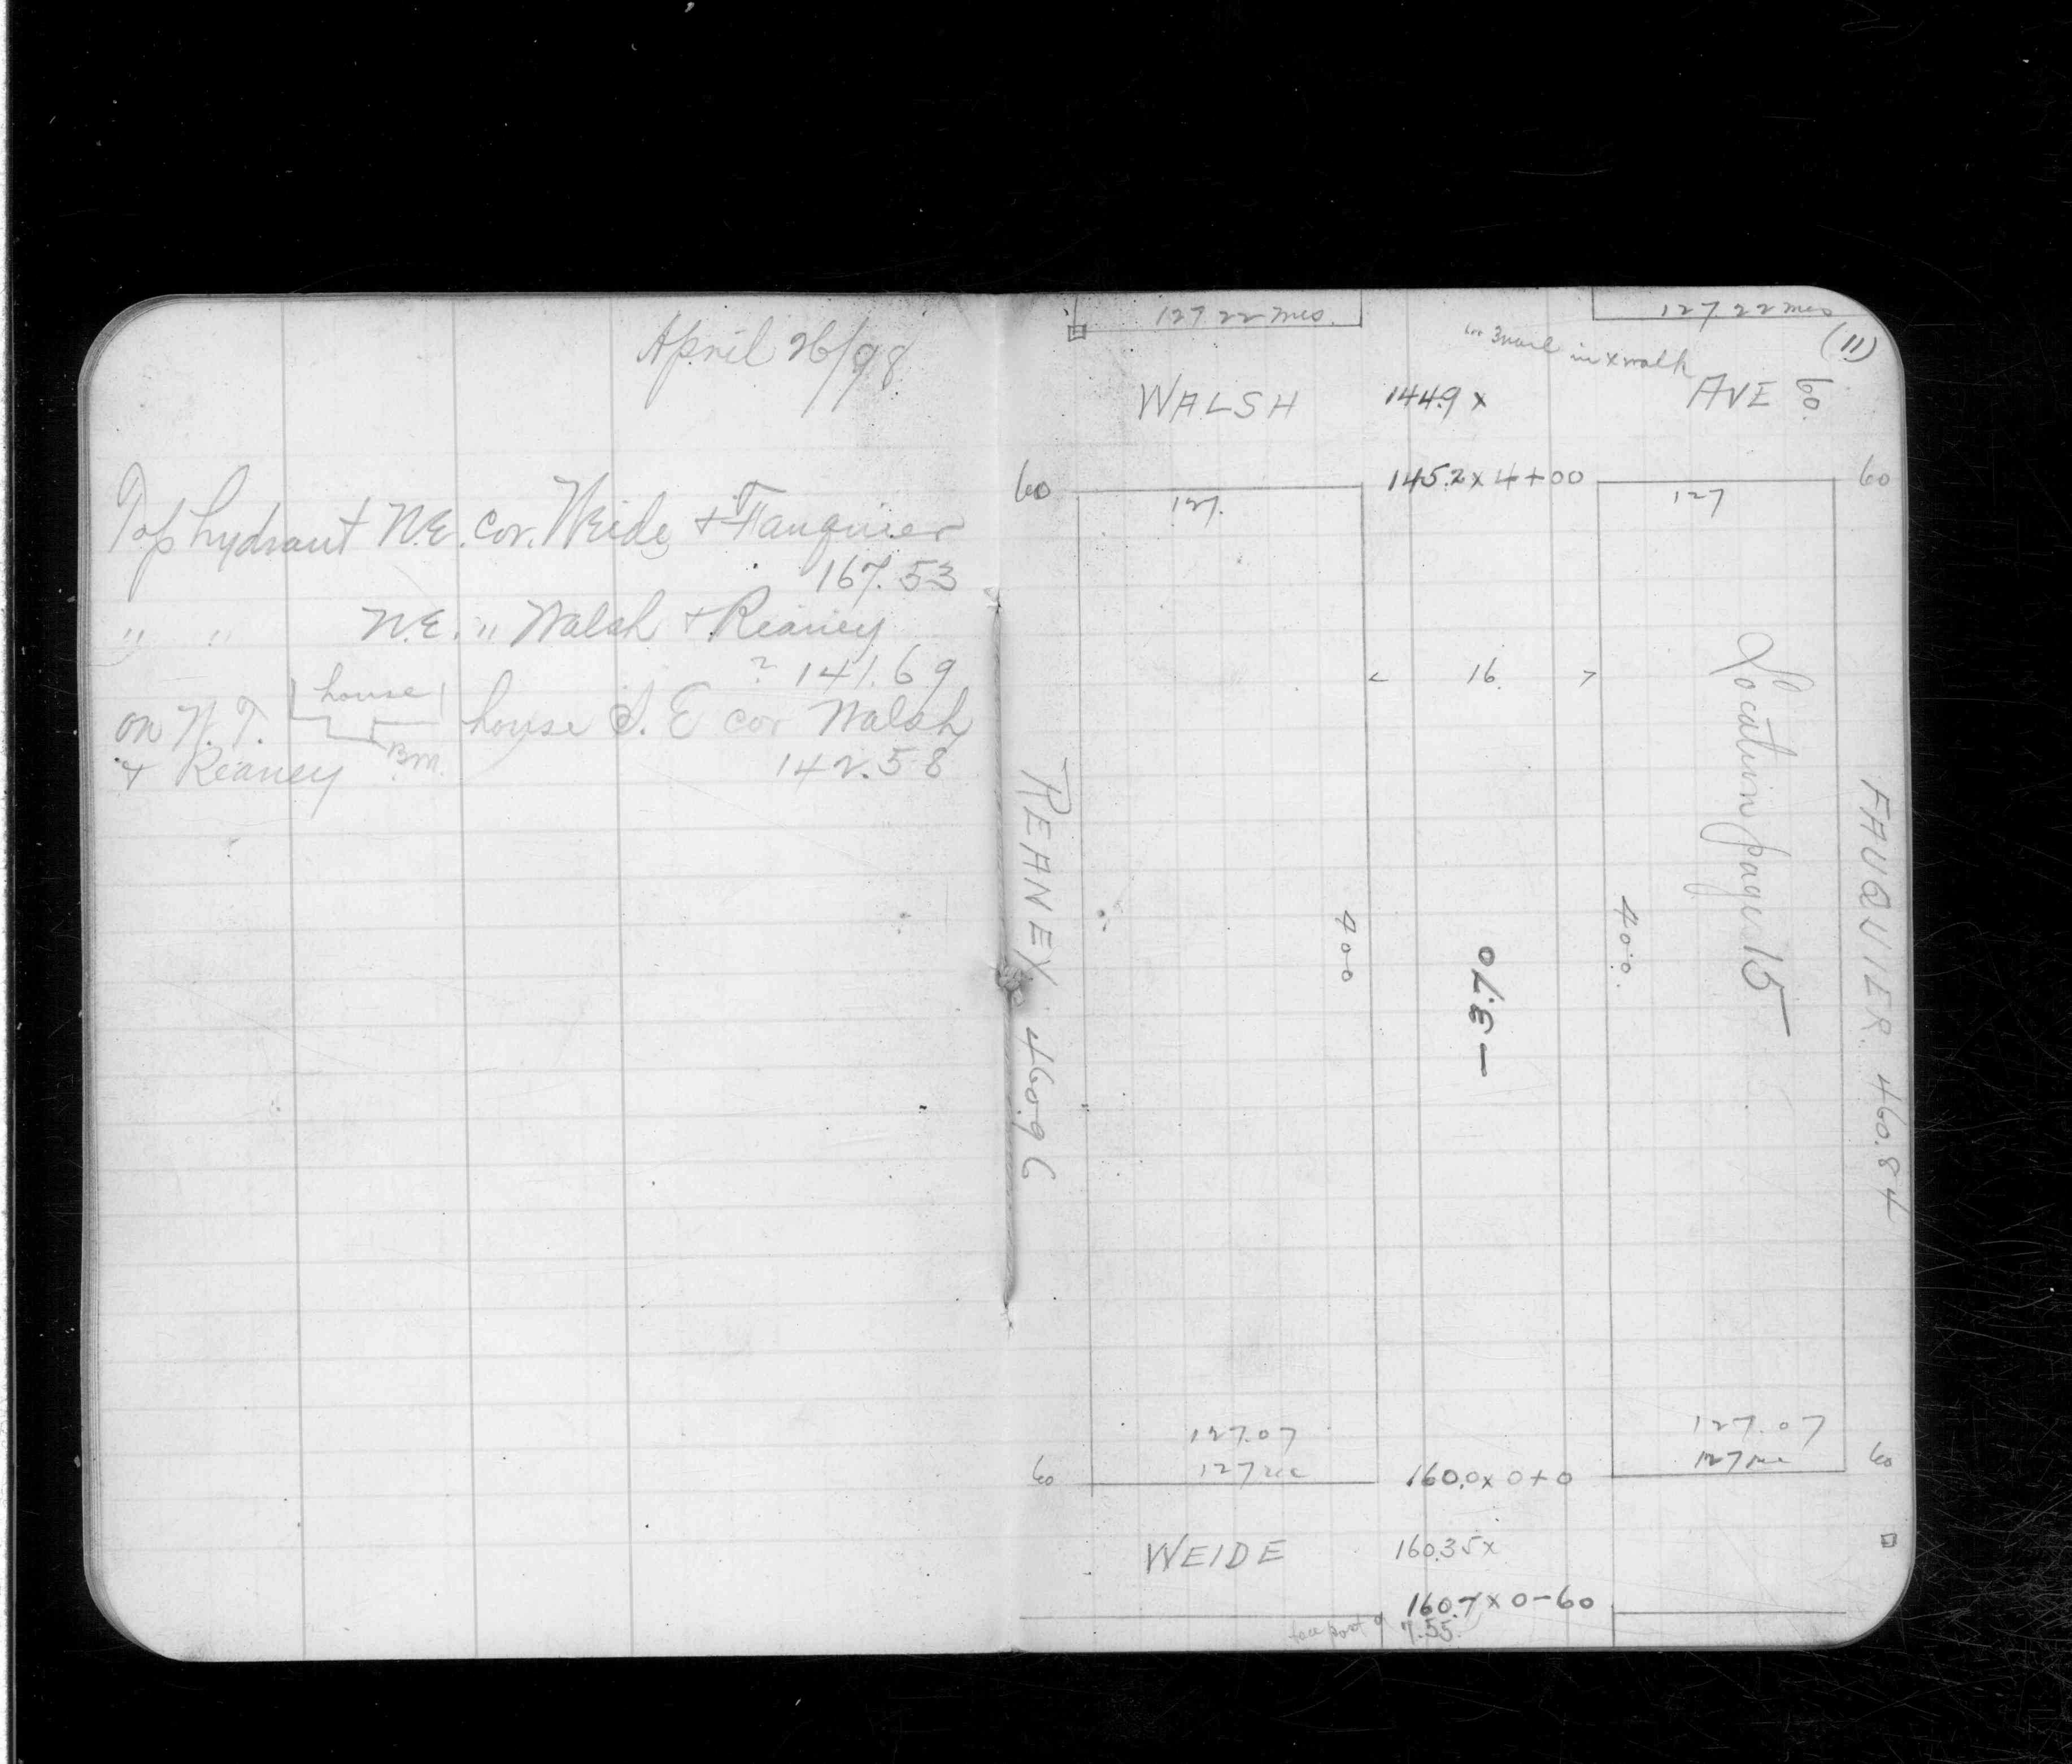 April 26/98
Top hydrant N.E. cor. Weide + Fauquier
167.53
" " N.E. " Walsh + Reaney
? 141.69
house
on W.T. house S.E cor Walsh
B.M.
+ Reaney 142.58
127 22 mes. 127 22 mes
(11)
in x walk
WALSH 144.9 x AVE 60
60 145.2 x 4+00 60
127. 127
< 16. >
Location page 15
REANEY. 460.96
400
- 3.70
400.
FAUQUIER. 460.84
127.07 127.07
60 127 rec 160.0 x 0+0 127 rec 60
WEIDE 160.35 x
160.7 x 0-60
7.55